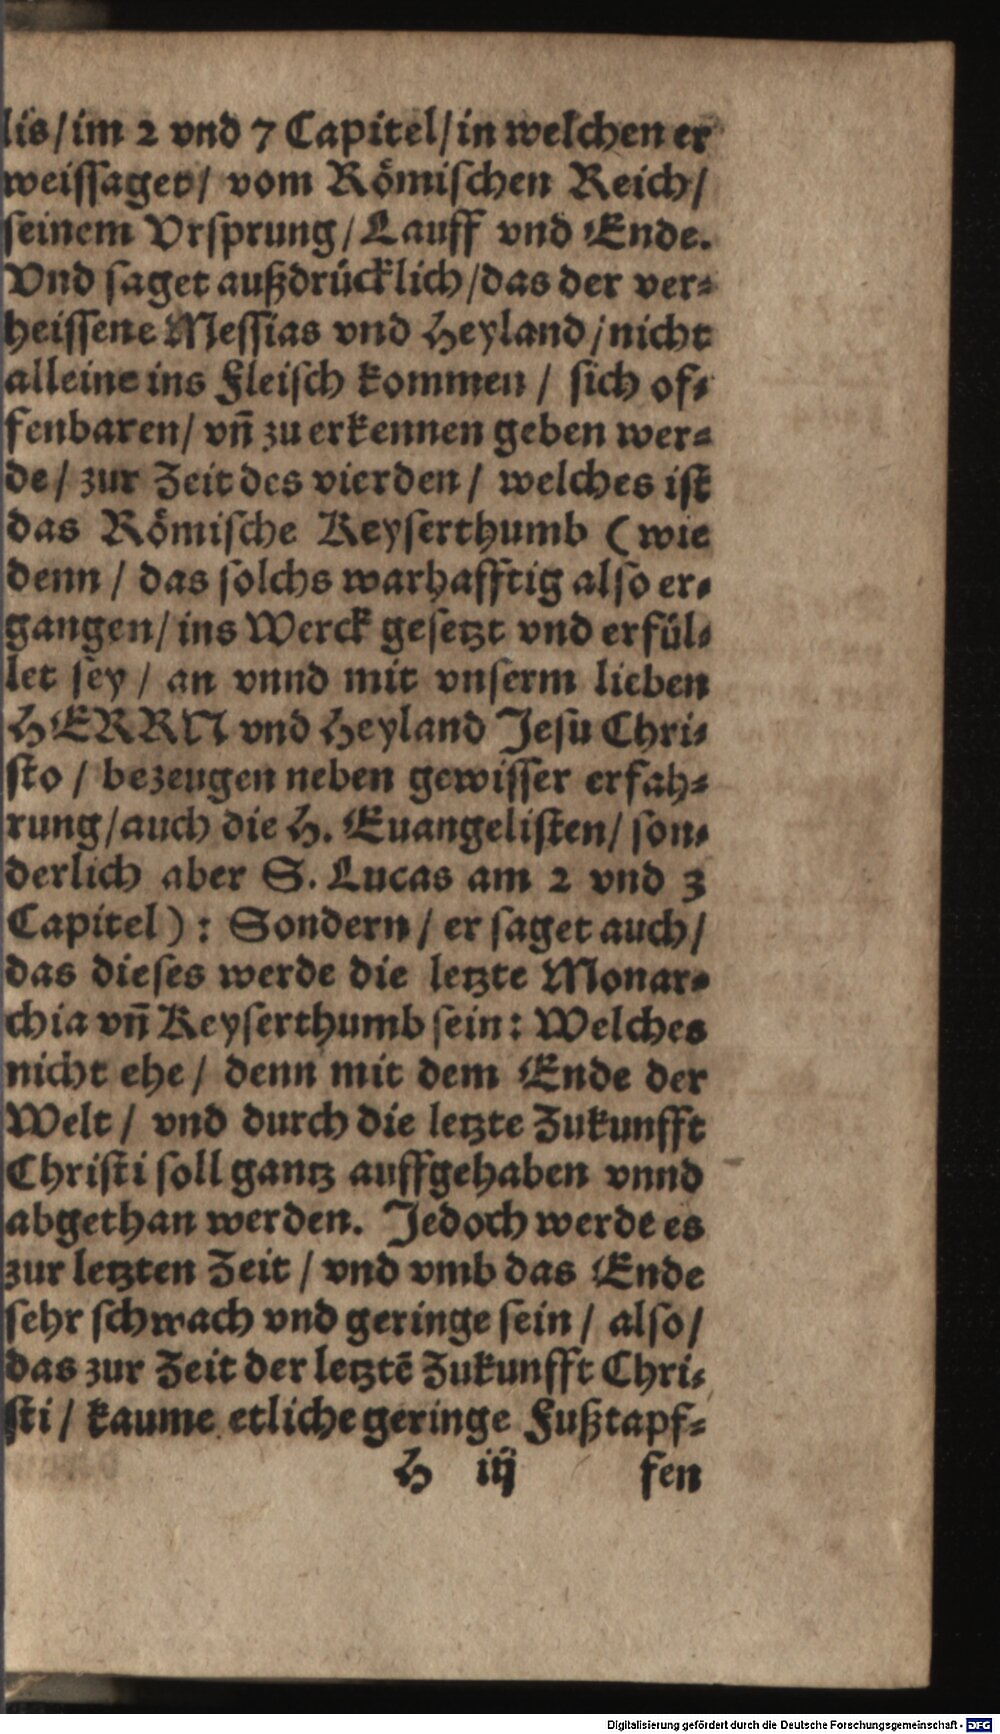 lis/im 2 vnd 7 Capitel/in welchen er
weissaget/ vom Römischen Reich/
seinem Vrsprung/Lauff vnd Ende.
Vnd saget außdrücklich/das der ver-
heissene Messias vnd Heyland/nicht
alleine ins Fleisch kommen/ sich of-
fenbaren/ vñ zu erkennen geben wer-
de/ zur Zeit des vierden/ welches ist
das Römische Keyserthumb (wie
denn/ das solchs warhafftig also er-
gangen/ins Werck gesetzt vnd erfül-
let sey/ an vnnd mit vnserm lieben
HERRN vnd Heyland Jesu Chri-
sto/ bezeugen neben gewisser erfah-
rung/auch die H. Euangelisten/ son-
derlich aber S. Lucas am 2 vnd 3
Capitel): Sondern/ er saget auch/
das dieses werde die letzte Monar-
chia vñ Keyserthumb sein: Welches
nicht ehe/ denn mit dem Ende der
Welt/ vnd durch die letzte Zukunfft
Christi soll gantz auffgehaben vnnd
abgethan werden. Jedoch werde es
zur letzten Zeit/ vnd vmb das Ende
sehr schwach vnd geringe sein/ also/
das zur Zeit der letztẽ Zukunfft Chri-
sti/ kaume etliche geringe Fußtapf-
H iij fen
Digitalisierung gefördert durch die Deutsche Forschungsgemeinschaft - DFG